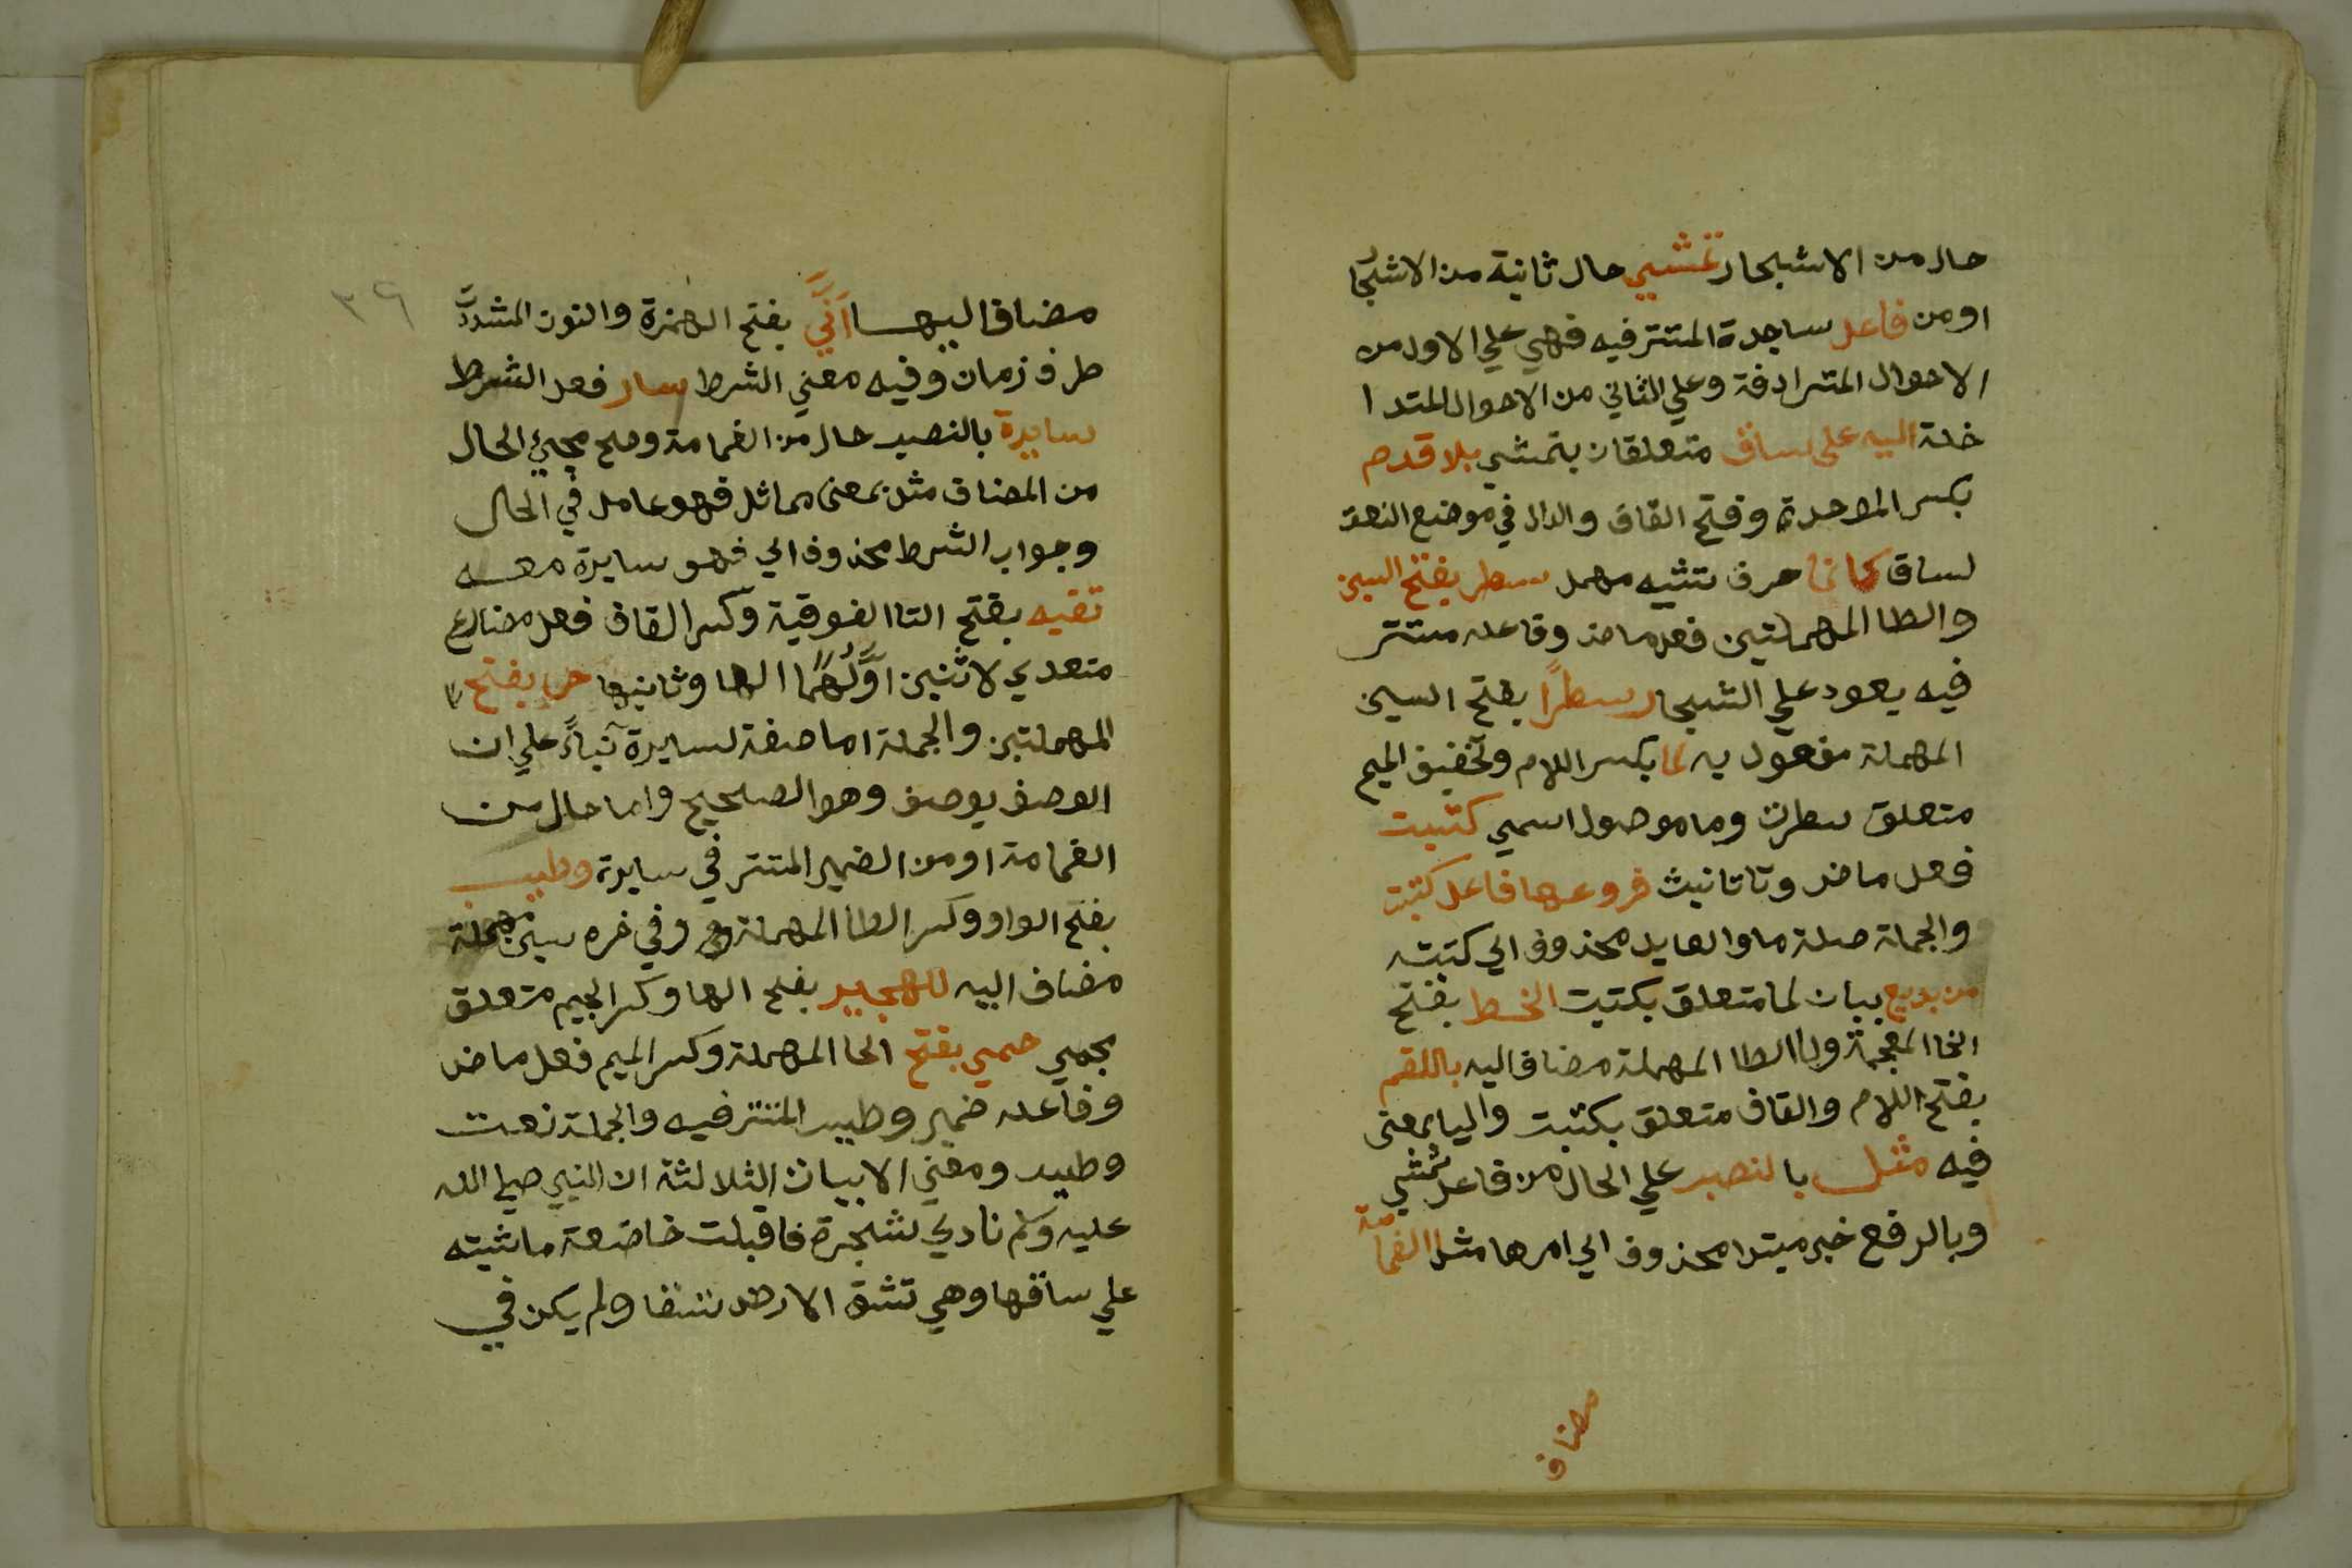 حال من الاشجار تمشي حال ثانية من الاشجا
او من فاعل ساجدة المتتر فيه فهي علي الاول من
الاحوال المترادفة وعلي الثاني من الاحوال المتدا
خلة اليه على ساق متعلقان بتمشي بلا قدم
بكسر الموحدة وفتح القاف والدال في موضع النعت
لساق كانما حرف تشبيه مهمل سطر بفتح السين
والطا المهملتين فعل ماض وفاعله مستتر
فيه يعود علي الشجار سطرًا بفتح السين
المهملة مفعول به لما بكسر اللام وتخفيف الميم
متعلق بسطرت وما موصول اسمي كتبت
فعل ماض وتا تانيث فروعها فاعل كتبت
والجملة صلة ما والعايد محذوف اي كتبته
من بديع بيان لما متعلق بكتبت الخط بفتح
الخا المعجمة والطا المهملة مضاف اليه باللقم
بفتح اللام والقاف متعلق بكتبت والبا بمعنى
فيه مثل بالنصب علي الحال من فاعل تمشي
وبالرفع خبر مبتدا محذوف اي امرها مثل الغمامة
مضاف
٣٦
مضاف اليها اَنَّي بفتح الهمزة والنون المشدد
ظرف زمان وفيه معني الشرط سار فعل الشرط
سايرة بالنصب حال من الغمامة وصح مجيئ الحال
من المضاف مثل بمعنى مماثل فهو عامل في الحال
وجواب الشرط محذوف اي فهو سايرة معه
تقيه بفتح التا الفوقية وكسر القاف فعل مضارع
متعدي لاثنين اَوَّلُهُمَا الها وثانيها حر بفتح
المهملتين والجملة اما صفة لسايرة بناءً علي ان
الوصف يوصف وهو الصحيح واما حال من
الغمامة او من الضمير المتتر في سايرة وطيب
بفتح الواو وكسر الطا المهملة وفي اخره سين مهملة
مضاف اليه للهجير بفتح الها وكسر الجيم متعلق
بحمي حمي بفتح الحا المهملة وكسر الميم فعل ماض
وفاعله ضمير وطيس المتتر فيه والجملة نعت
وطيس ومعني الابيات الثلاثة ان النبي صلي الله
عليه وسلم نادي شجرة فاقبلت خاضعة ماشيته
علي ساقها وهي تشق الارض شقا ولم يكن في